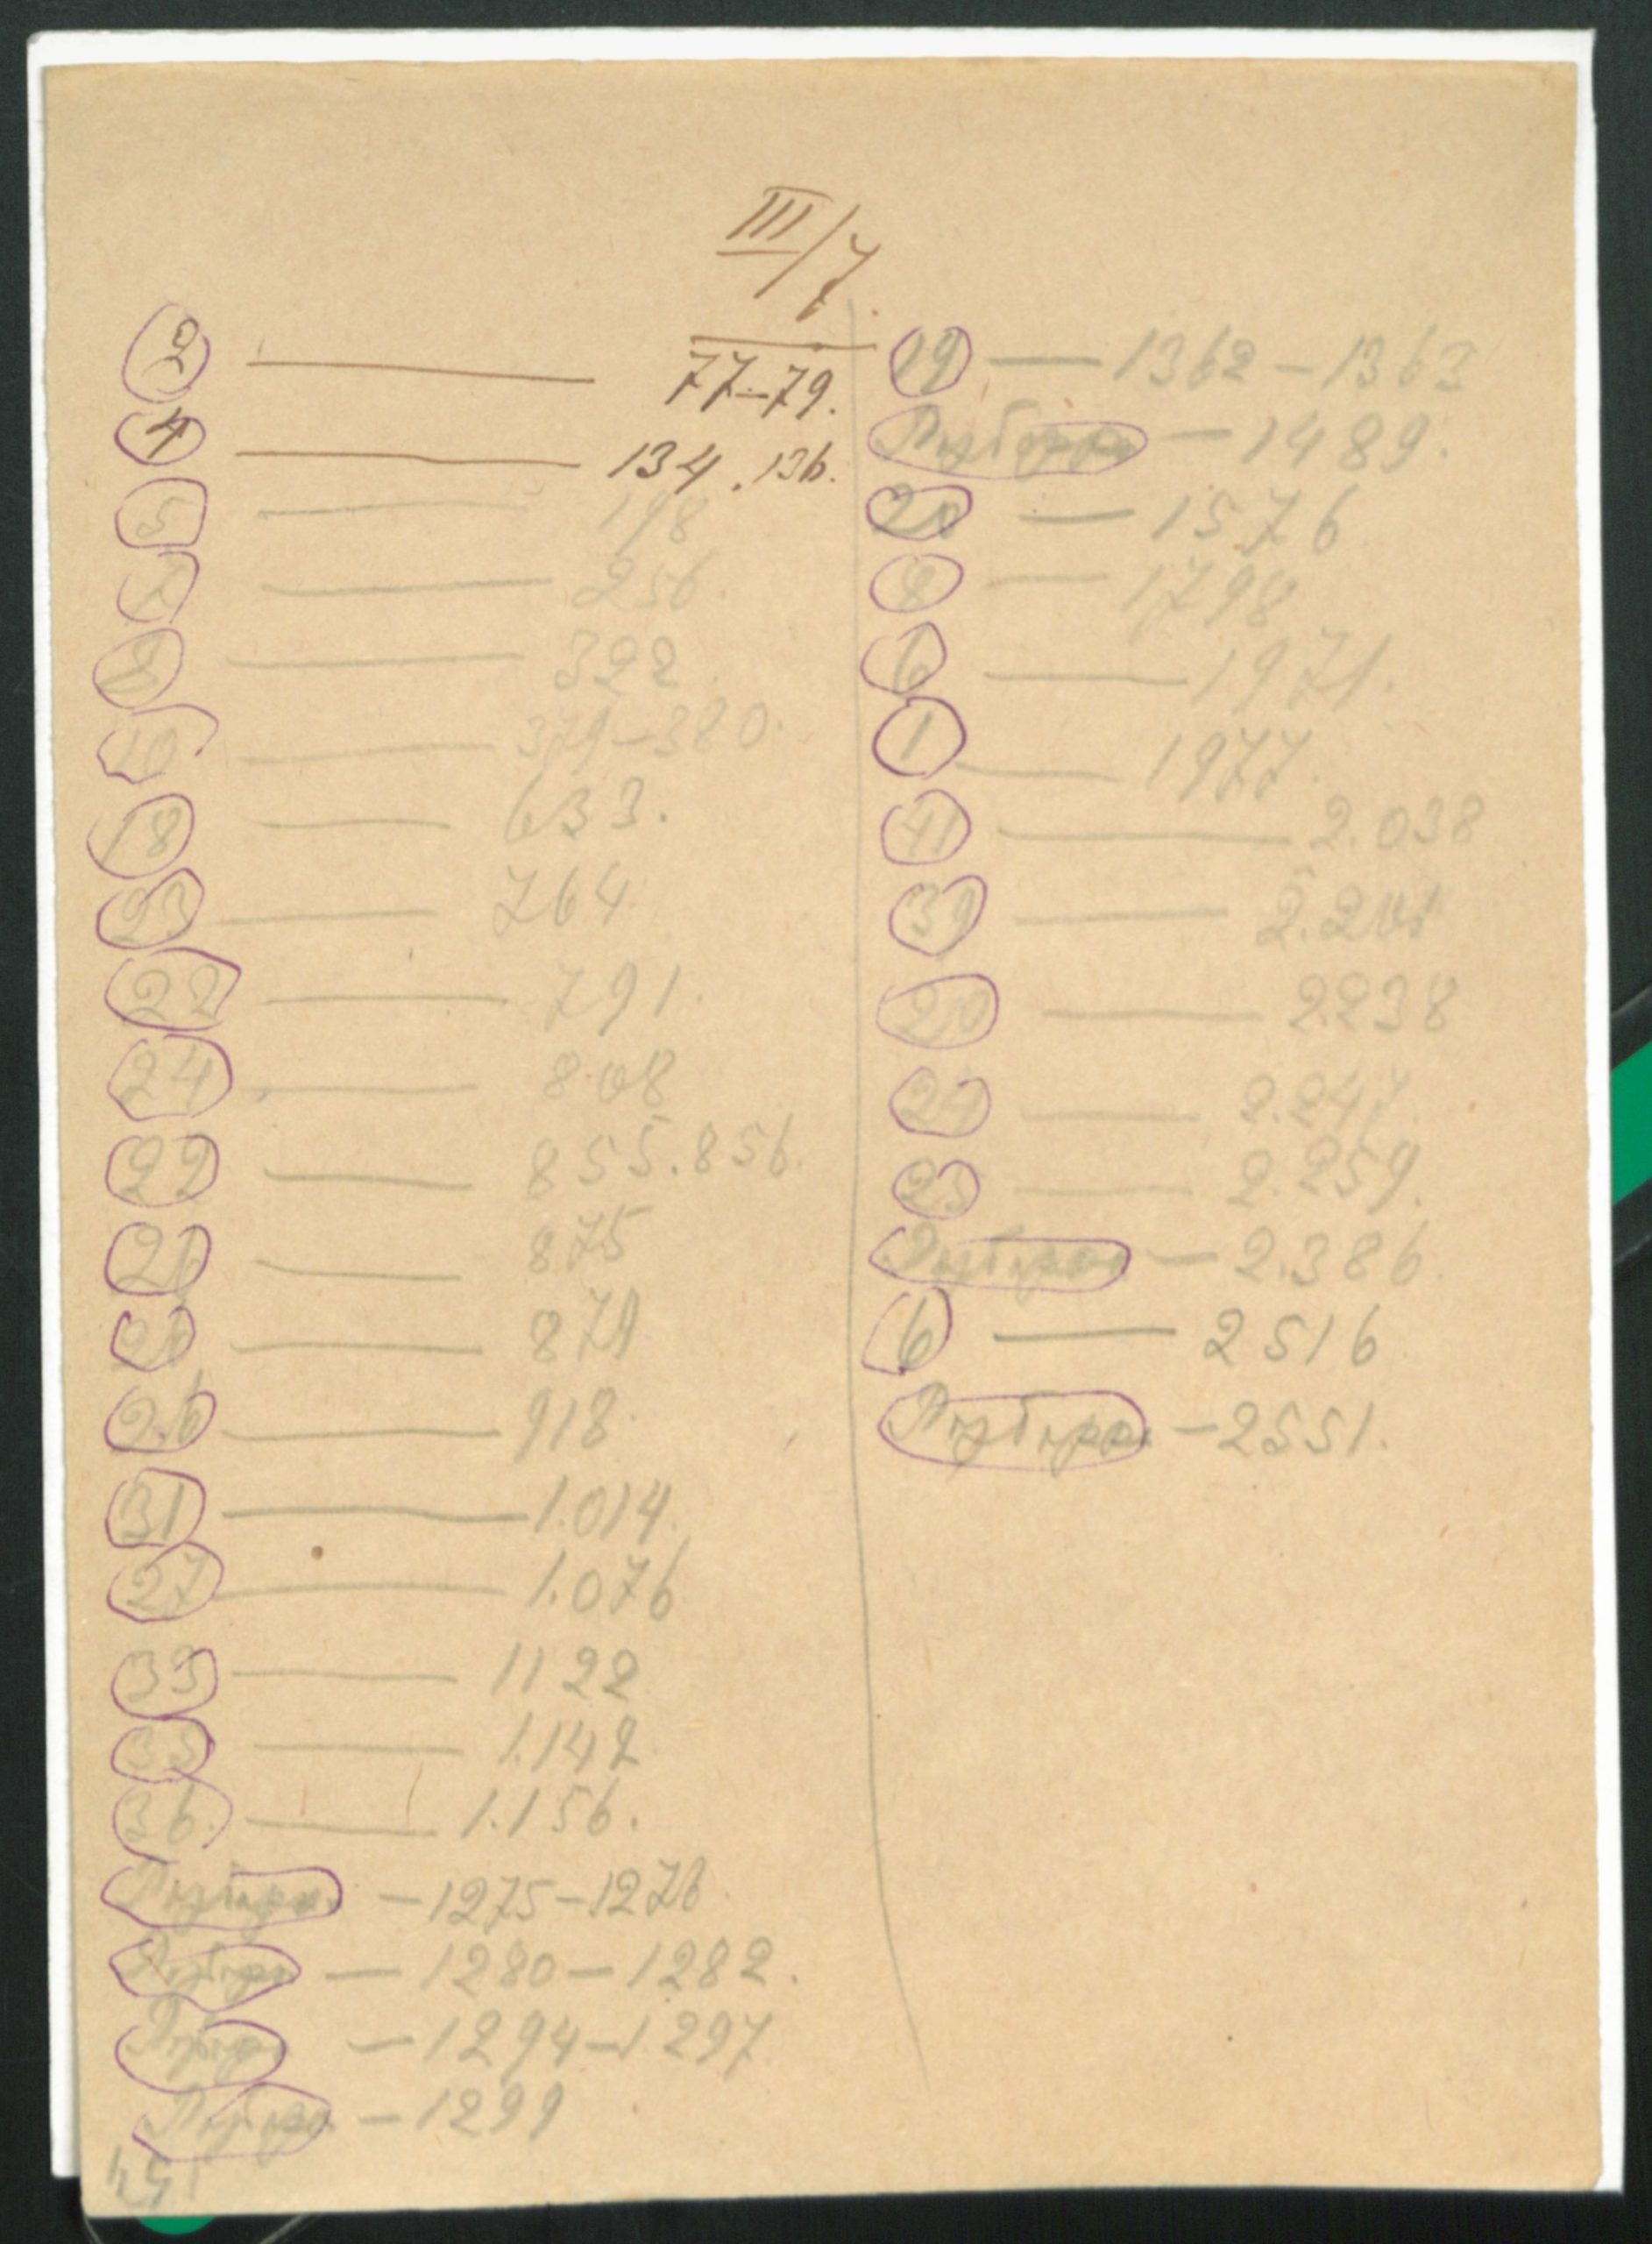 III/7.
2 — 77–79.
4 — 134. 136.
5 — 198
7 — 256.
8 — 322.
10 — 379–380.
18 — 633.
23 — 764
22 — 791.
24 — 808
22 — 855. 856.
21 — 875
— 879
26 — 918.
31 — 1.014.
27 — 1.076
33 — 1122
33 — 1.142
36. — 1.156.
— 1275–1276.
— 1280–1282.
— 1294–1297
— 1299
19 — 1362–1363
— 1489.
— 1576
— 1798
6 — 1971.
1 — 1977.
41 — 2.038
39 — 2.201
20 — 2238
— 2.247.
23 — 2.259.
— 2.386.
6 — 2516
— 2551.